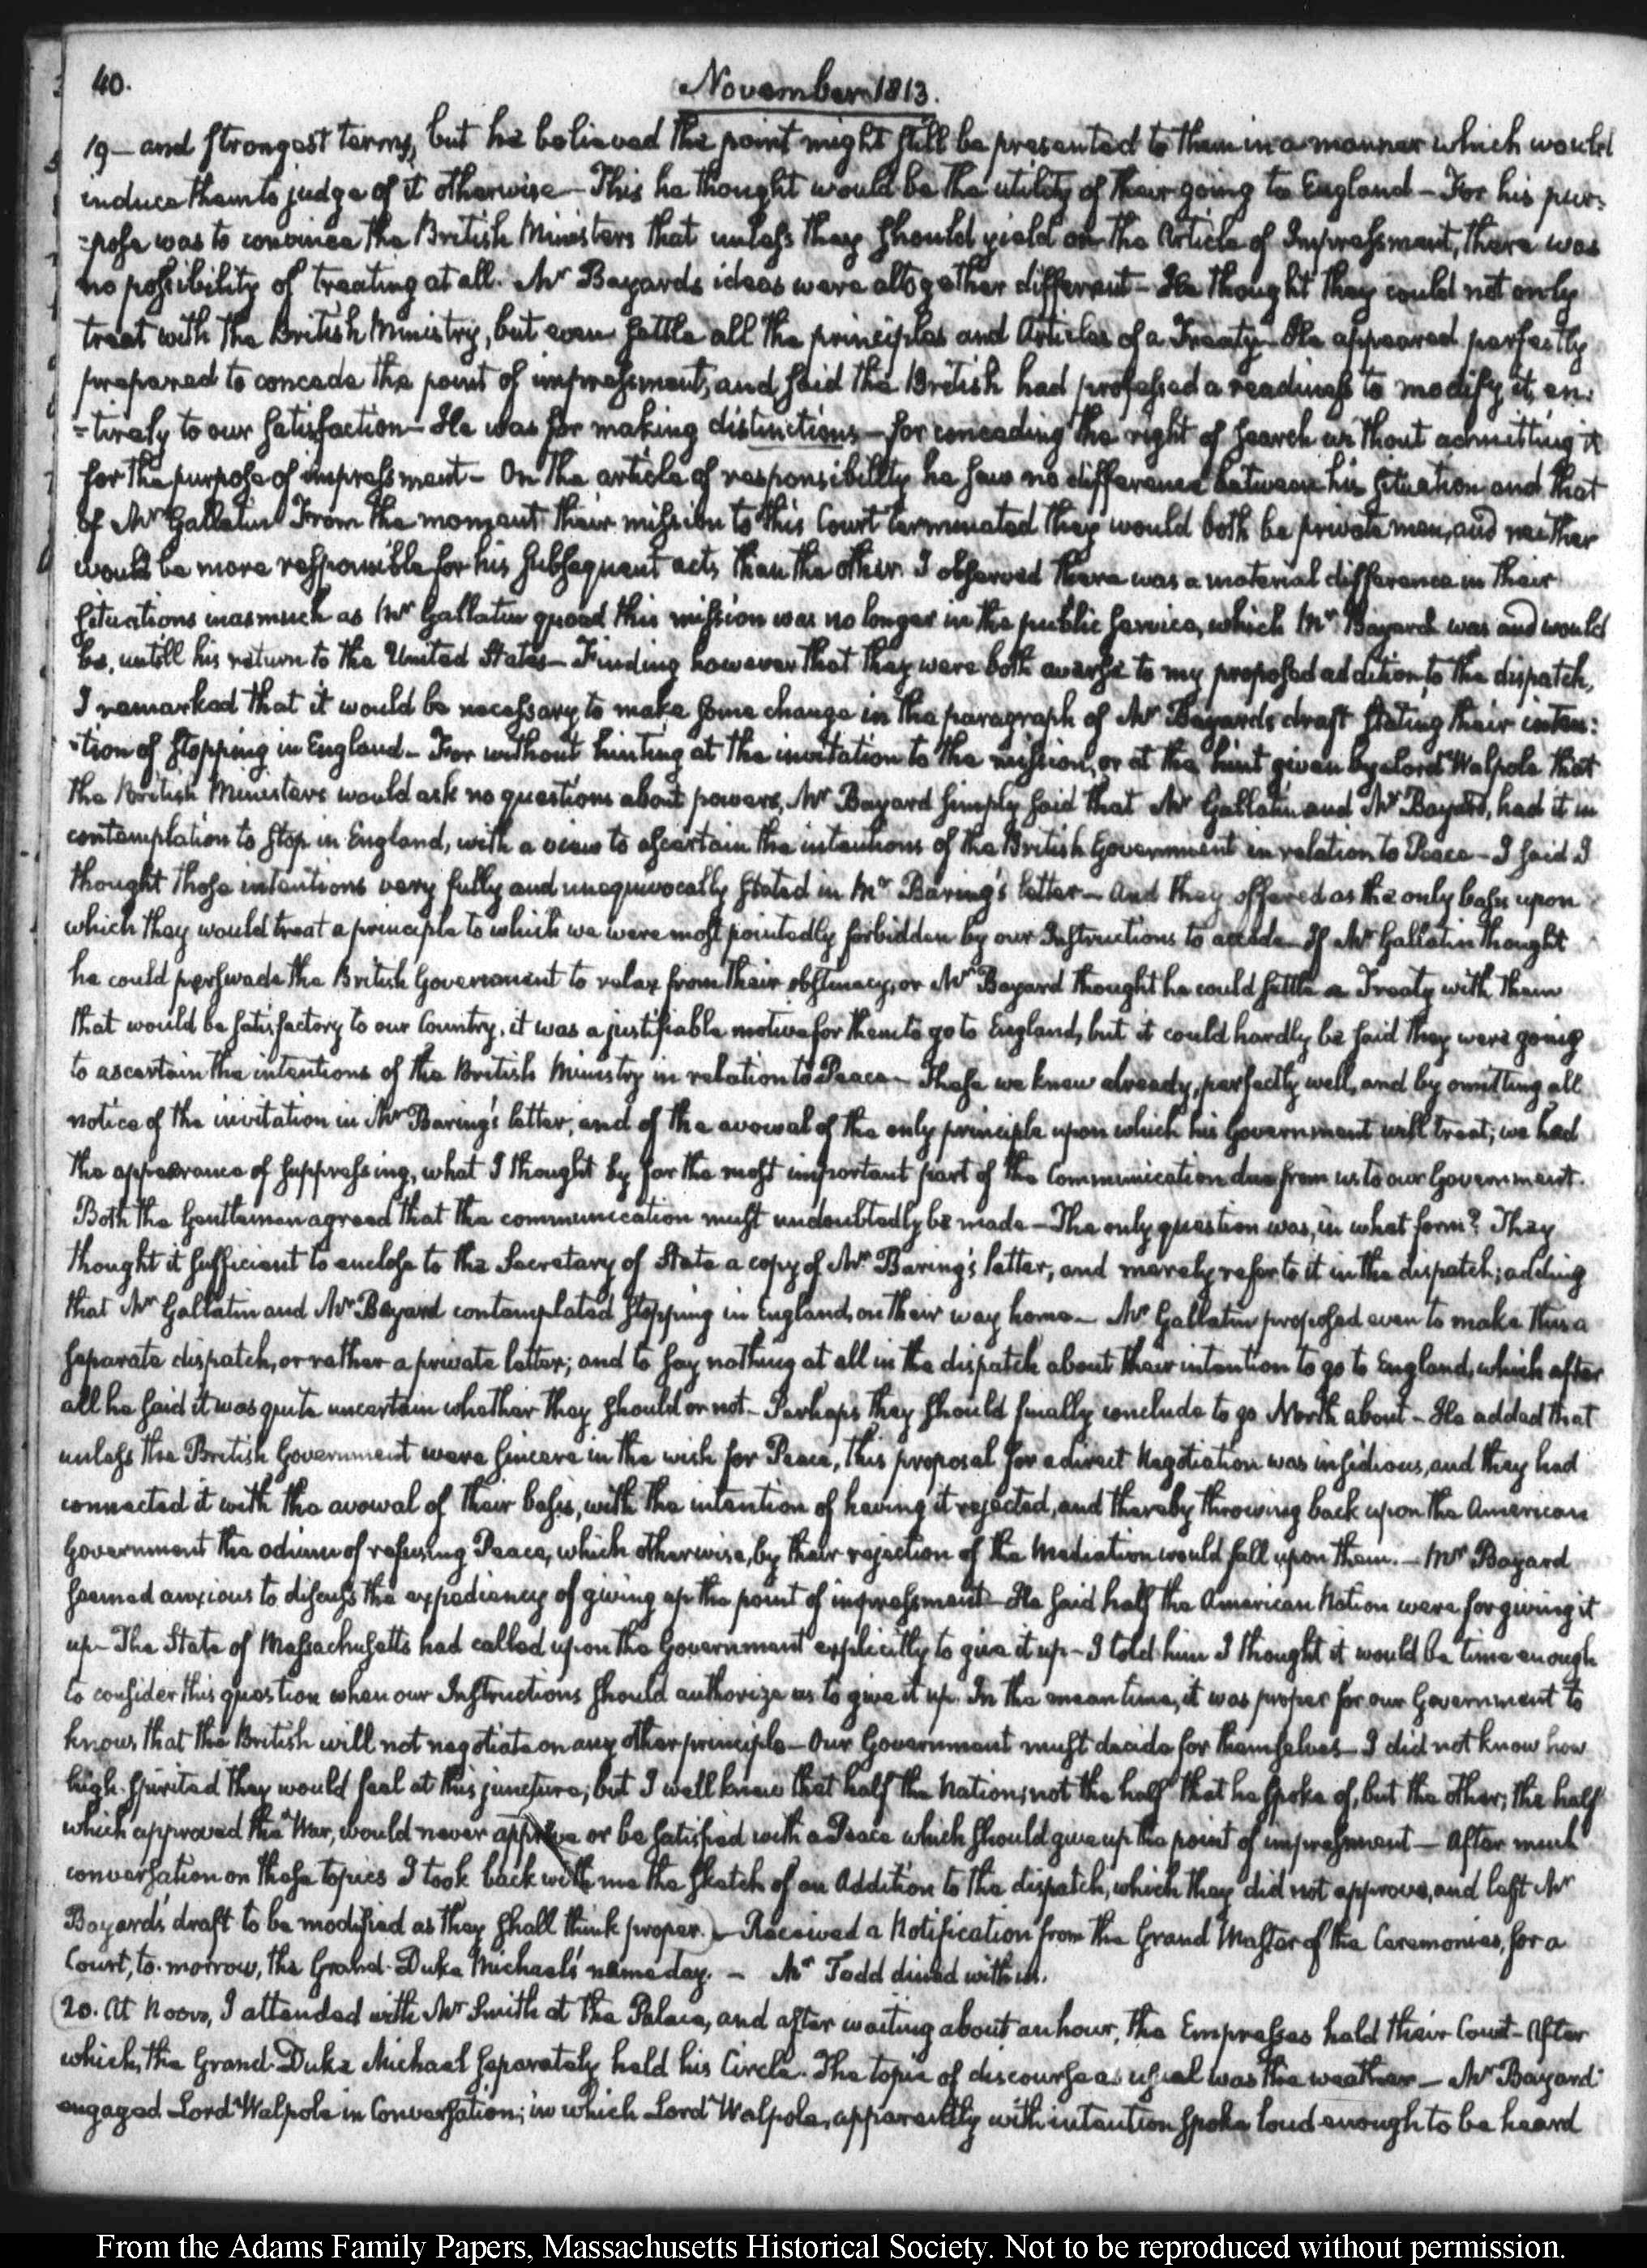 40.
November 1813.
19 — and strongest terms, but he believed the point might still be presented to them in a manner which would
induce them to judge of it otherwise — This he thought would be the utility of their going to England — For his pur=
=pose was to convince the British Ministers that unless they should yield on the Article of Impressment, there was
no possibility of treating at all. Mr Bayards ideas were altogether different — He thought they could not only
treat with the British Ministry, but even settle all the principles and Articles of a Treaty — He appeared perfectly
prepared to concede the point of impressment, and said the British had professed a readiness to modify it, en:
=tirely to our satisfaction — He was for making distinctions — for conceding the right of search without admitting it
for the purpose of impressment — On the article of responsibility he saw no difference between his situation and that
of Mr Gallatin From the moment their mission to this Court terminated they would both be private men, and neither
would be more responsible for his subsequent acts than the other. I observed there was a material difference in their
situations inasmuch as Mr Gallatin quoad this mission was no longer in the public service, which Mr Bayard was and would
be, untill his return to the United States — Finding however that they were both averse to my proposed addition to the dispatch,
I remarked that it would be necessary to make some change in the paragraph of Mr Bayards draft stating their inten:
=tion of stopping in England — For without hinting at the invitation to the mission, or at the hint given by Lord Walpole that
the British Ministers would ask no questions about powers, Mr Bayard simply said that Mr Gallatin and Mr Bayard, had it in
contemplation to stop in England, with a view to ascertain the intentions of the British Government in relation to Peace — I said I
thought those intentions very fully and unequivocally stated in Mr Baring's letter — And they offered as the only basis upon
which they would treat a principle to which we were most pointedly forbidden by our Instructions to accede — If Mr Gallatin thought
he could perswade the British Government to relax from their obstinacy, or Mr Bayard thought he could settle a Treaty with them
that would be satisfactory to our Country, it was a justifiable motive for them to go to England, but it could hardly be said they were going
to ascertain the intentions of the British Ministry in relation to Peace — These we knew already, perfectly well, and by omitting all
notice of the invitation in Mr Baring's letter, and of the avowal of the only principle upon which his Government will treat; we had
the appearance of suppressing, what I thought by far the most important part of the Communication due from us to our Government.
Both the Gentlemen agreed that the communication must undoubtedly be made — The only question was, in what form? They
thought it sufficient to enclose to the Secretary of State a copy of Mr Baring's letter, and merely refer to it in the dispatch; adding
that Mr Gallatin and Mr Bayard contemplated stopping in England, on their way home — Mr Gallatin proposed even to make this a
separate dispatch, or rather a private letter; and to say nothing at all in the dispatch about their intention to go to England, which after
all he said it was quite uncertain whether they should or not — Perhaps they should finally conclude to go North about — He added that
unless the British Government were sincere in the wish for Peace, this proposal for a direct Negotiation was insidious, and they had
connected it with the avowal of their basis, with the intention of having it rejected, and thereby throwing back upon the American
Government the odium of refusing Peace, which otherwise, by their rejection of the Mediation would fall upon them. — Mr Bayard
seemed anxious to discuss the expediency of giving up the point of impressment — He said half the American Nation were for giving it
up — The State of Massachusetts had called upon the Government explicitly to give it up — I told him I thought it would be time enough
to consider this question when our Instructions should authorize us to give it up. In the mean time, it was proper for our Government to
know, that the British will not negotiate on any other principle — Our Government must decide for themselves — I did not know how
high-spirited they would feel at this juncture; but I well knew that half the Nation; not the half that he spoke of, but the other; the half
which approved the War, would never approve or be satisfied with a Peace which should give up the point of impressment — After much
conversation on these topics I took back with me the sketch of an Addition to the dispatch, which they did not approve, and left Mr
Bayard's draft to be modified as they shall think proper.) — Received a Notification from the Grand Master of the Ceremonies, for a
Court, to-morrow, the Grand-Duke Michael's name day. — Mr Todd dined with us.
20. At Noon, I attended with Mr Smith at the Palace, and after waiting about an hour, the Empresses held their Court — After
which, the Grand-Duke Michael separately held his Circle. The topic of discourse as usual was the weather — Mr Bayard
engaged Lord Walpole in Conversation; in which Lord Walpole, apparently with intention spoke loud enough to be heard
From the Adams Family Papers, Massachusetts Historical Society. Not to be reproduced without permission.